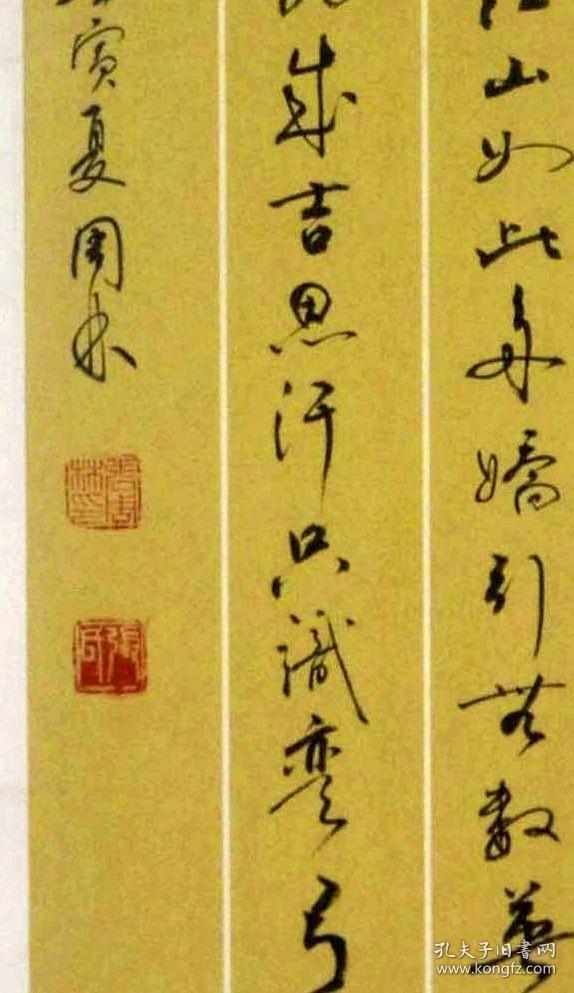 江山如此多嬌引無數英
成吉思汗只識彎弓
壬寅夏周林
張周林印
孔夫子旧书网
www.kongfz.com